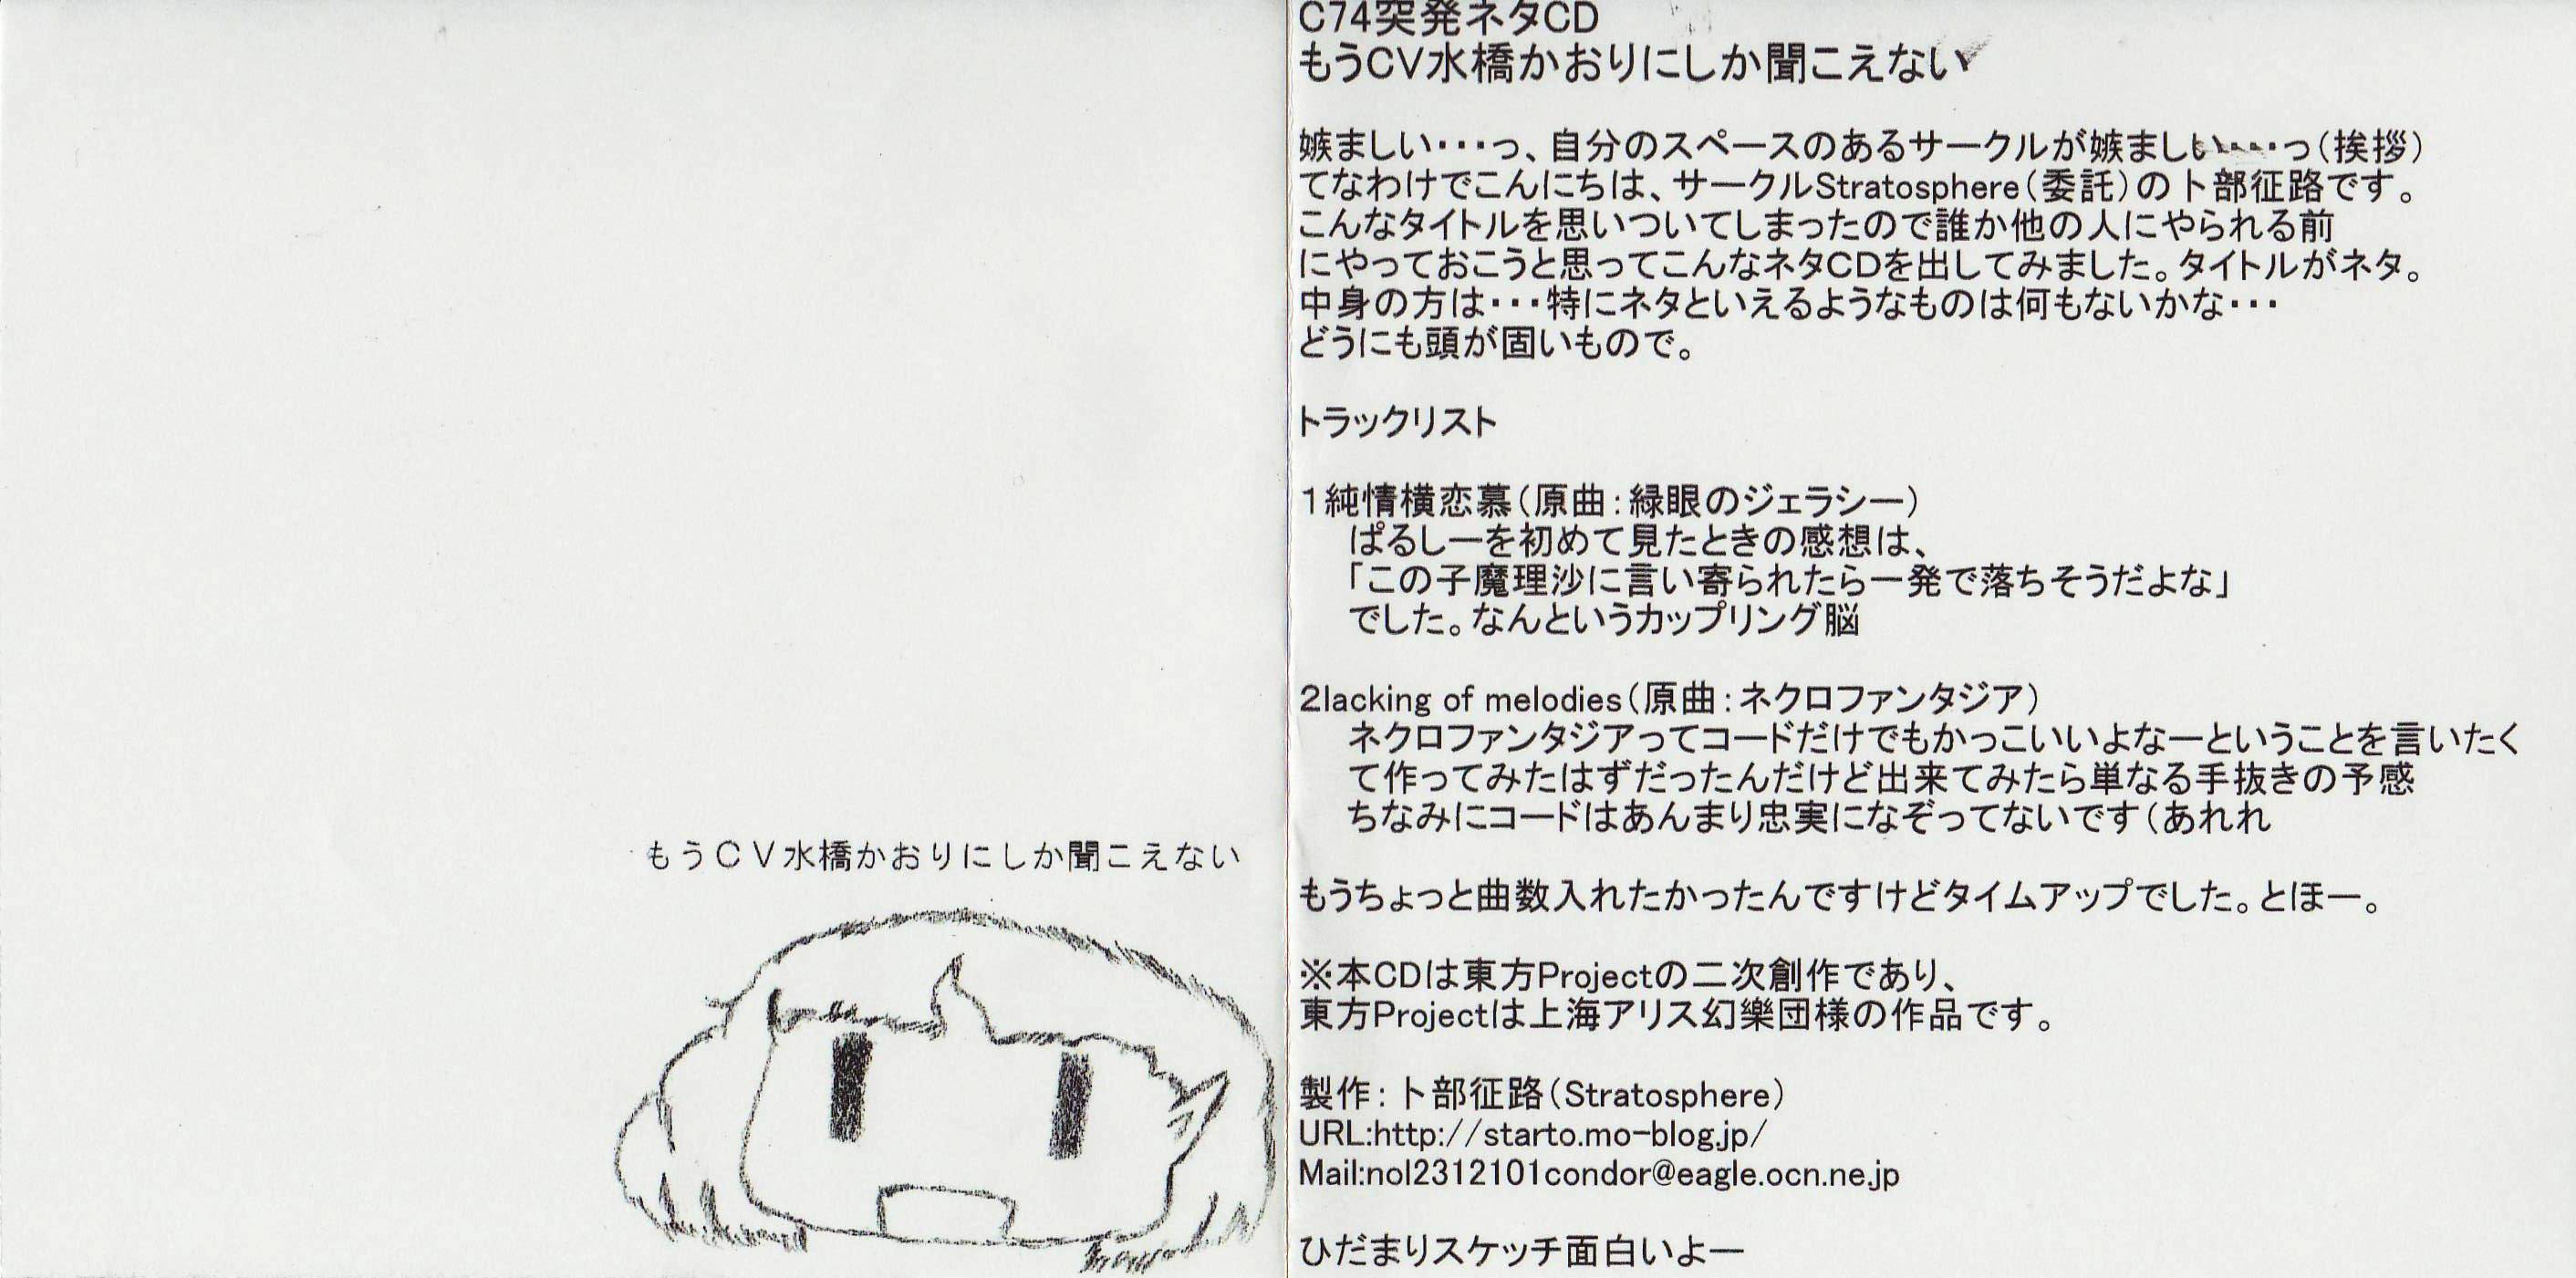 もうＣＶ水橋かおりにしか聞こえない
C74突発ネタCD
もうCV水橋かおりにしか聞こえない
嫉ましい・・・っ、自分のスペースのあるサークルが嫉ましい・・・っ（挨拶）
てなわけでこんにちは、サークルStratosphere（委託）の卜部征路です。
こんなタイトルを思いついてしまったので誰か他の人にやられる前
にやっておこうと思ってこんなネタCDを出してみました。タイトルがネタ。
中身の方は・・・特にネタといえるようなものは何もないかな・・・
どうにも頭が固いもので。
トラックリスト
1純情横恋慕（原曲：緑眼のジェラシー）
ぱるしーを初めて見たときの感想は、
「この子魔理沙に言い寄られたら一発で落ちそうだよな」
でした。なんというカップリング脳
2lacking of melodies（原曲：ネクロファンタジア）
ネクロファンタジアってコードだけでもかっこいいよなーということを言いたく
て作ってみたはずだったんだけど出来てみたら単なる手抜きの予感
ちなみにコードはあんまり忠実になぞってないです（あれれ
もうちょっと曲数入れたかったんですけどタイムアップでした。とほー。
※本CDは東方Projectの二次創作であり、
東方Projectは上海アリス幻樂団様の作品です。
製作：卜部征路（Stratosphere）
URL:http://starto.mo-blog.jp/
Mail:nol2312101condor@eagle.ocn.ne.jp
ひだまりスケッチ面白いよー